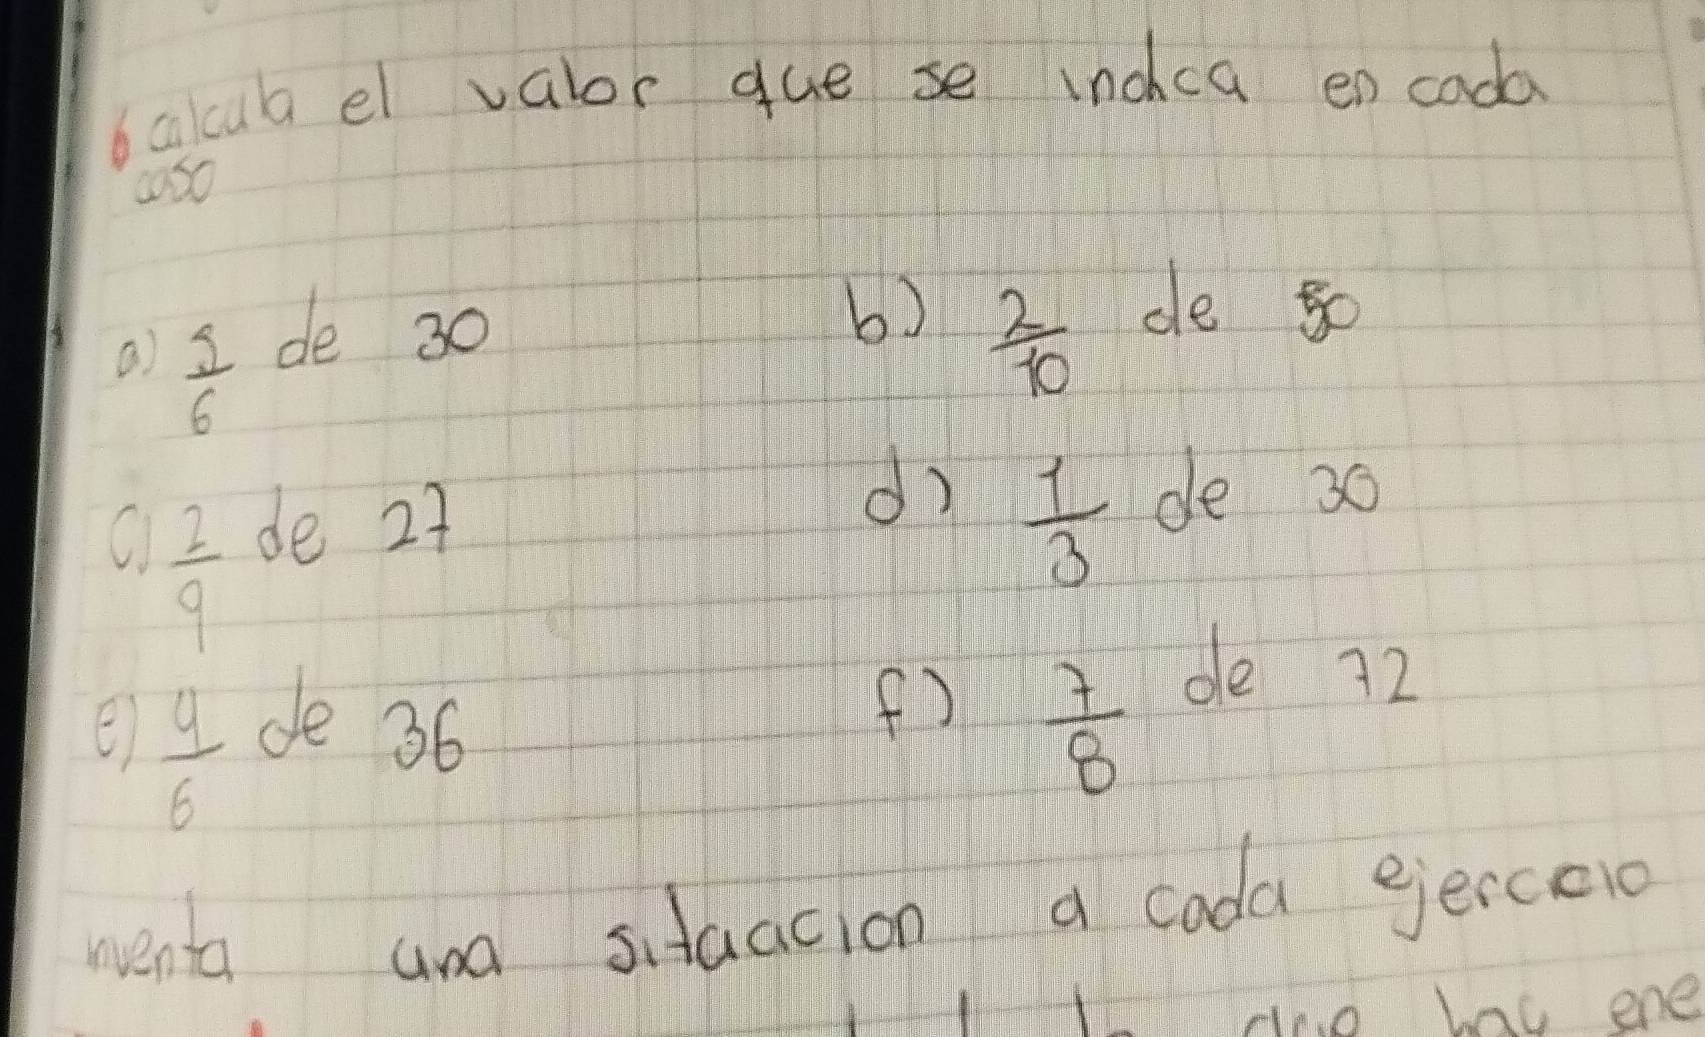 6 calcula el valor que se indica en cada
caso
a) 5/6 de 30
b) 2/10 de 50
c) 2/9 de 27
d) 1/3 de 30
e) 4/6 de 36
f) 7/8 de 72
inventa una situacion a cada ejercicio
que hay ene